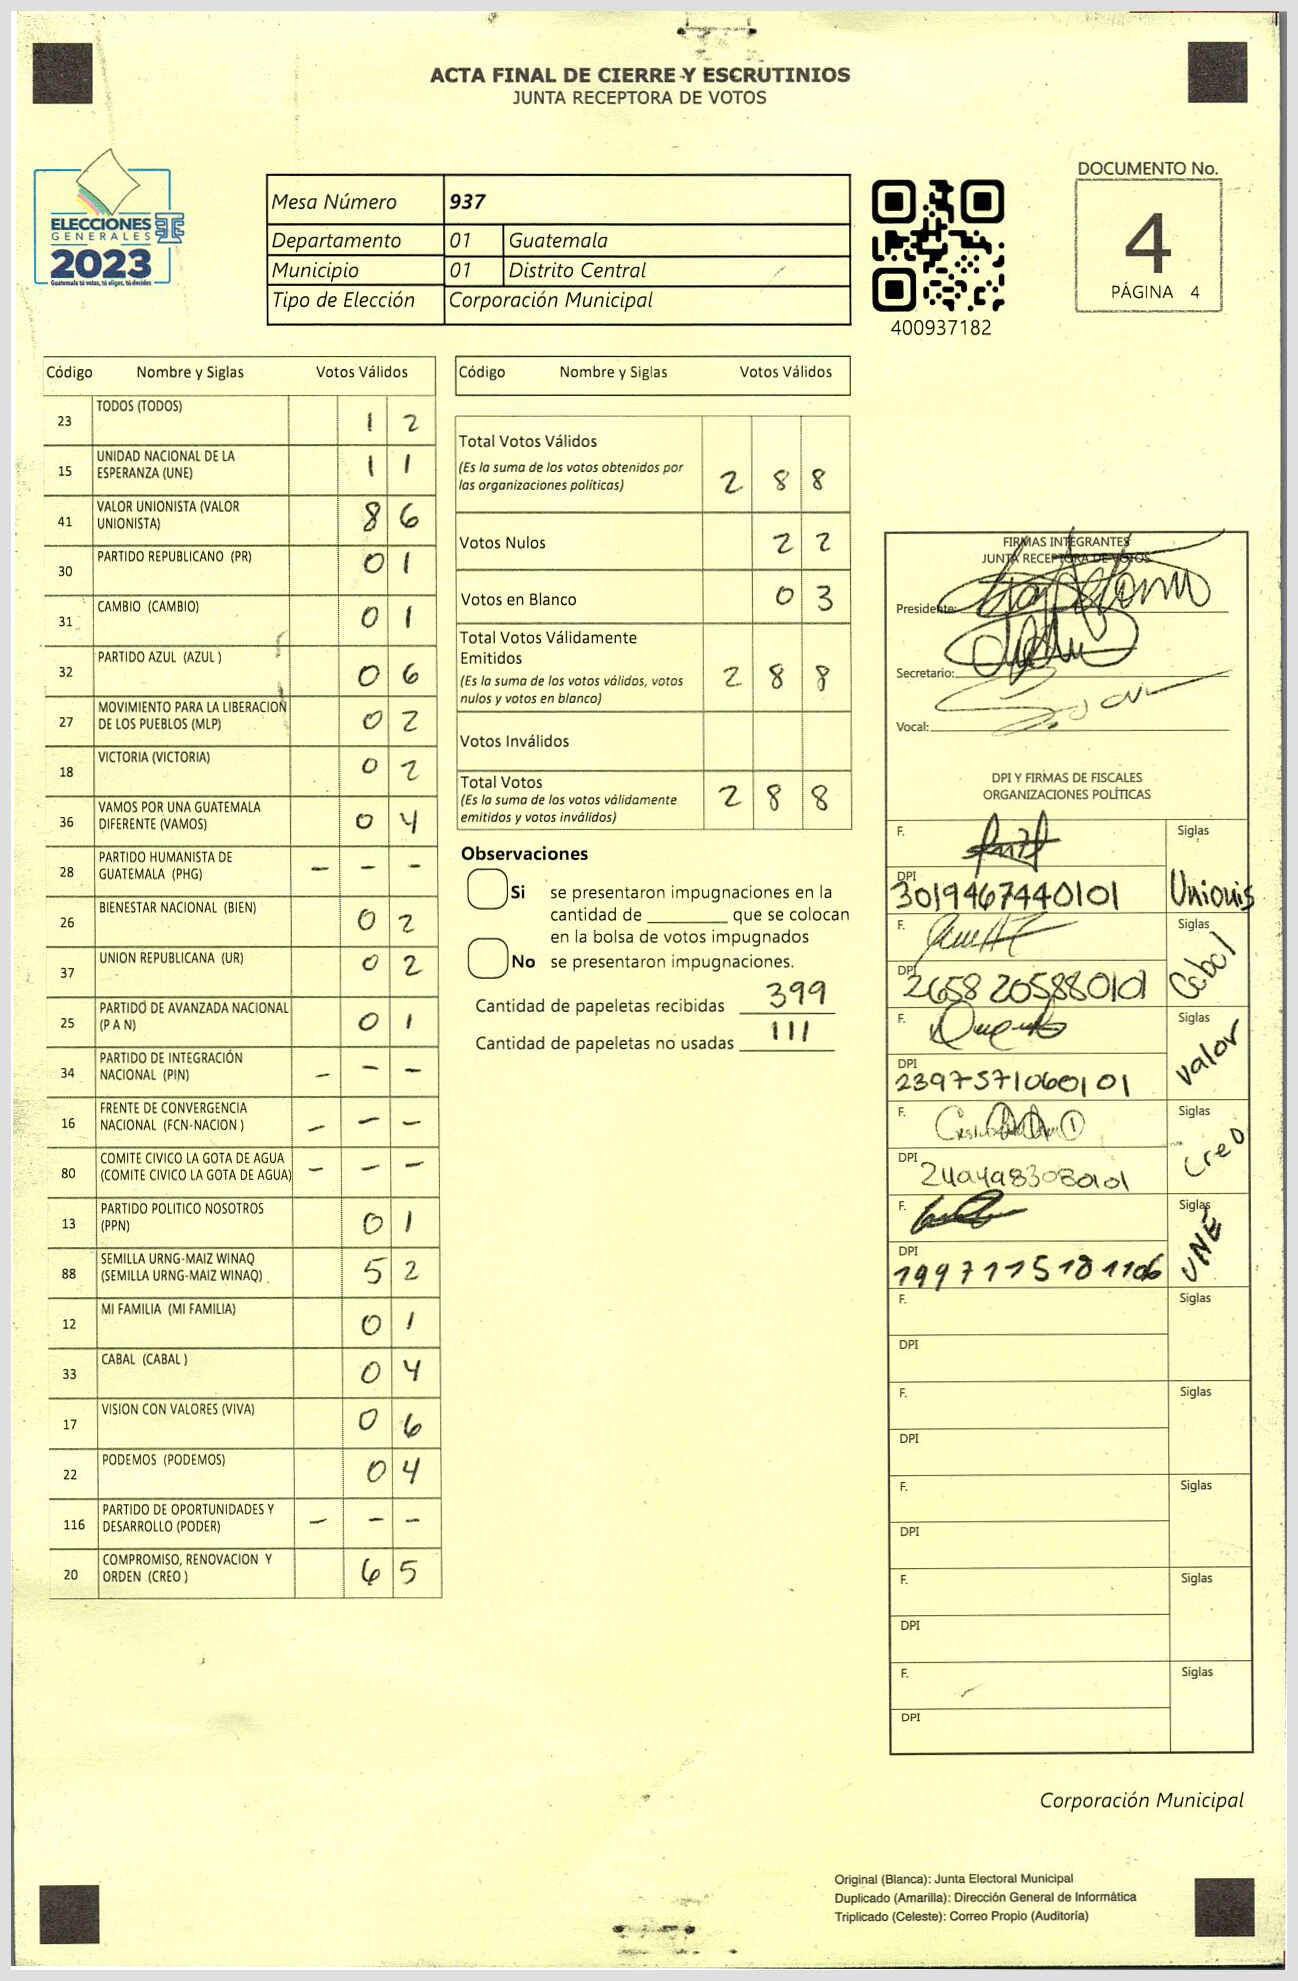 ACTA FINAL DE CIERRE Y ESCRUTINIOS
JUNTA RECEPTORA DE VOTOS
ELECCIONES
GENERALES
2023
Guatemala tú votas, tú eliges, tú decides
Mesa Número 937
Departamento 01 Guatemala
Municipio 01 Distrito Central
Tipo de Elección Corporación Municipal
400937182
DOCUMENTO No.
4
PÁGINA 4
Código Nombre y Siglas Votos Válidos
23 TODOS (TODOS) 1 2
15 UNIDAD NACIONAL DE LA
ESPERANZA (UNE) 1 1
41 VALOR UNIONISTA (VALOR
UNIONISTA) 8 6
30 PARTIDO REPUBLICANO (PR) 0 1
31 CAMBIO (CAMBIO) 0 1
32 PARTIDO AZUL (AZUL ) 0 6
27 MOVIMIENTO PARA LA LIBERACION
DE LOS PUEBLOS (MLP) 0 2
18 VICTORIA (VICTORIA) 0 2
36 VAMOS POR UNA GUATEMALA
DIFERENTE (VAMOS) 0 4
28 PARTIDO HUMANISTA DE
GUATEMALA (PHG) - - -
26 BIENESTAR NACIONAL (BIEN) 0 2
37 UNION REPUBLICANA (UR) 0 2
25 PARTIDO DE AVANZADA NACIONAL
(P A N) 0 1
34 PARTIDO DE INTEGRACIÓN
NACIONAL (PIN) - - -
16 FRENTE DE CONVERGENCIA
NACIONAL (FCN-NACION ) - - -
80 COMITE CIVICO LA GOTA DE AGUA
(COMITE CIVICO LA GOTA DE AGUA) - - -
13 PARTIDO POLITICO NOSOTROS
(PPN) 0 1
88 SEMILLA URNG-MAIZ WINAQ
(SEMILLA URNG-MAIZ WINAQ) 5 2
12 MI FAMILIA (MI FAMILIA) 0 1
33 CABAL (CABAL ) 0 4
17 VISION CON VALORES (VIVA) 0 6
22 PODEMOS (PODEMOS) 0 4
116 PARTIDO DE OPORTUNIDADES Y
DESARROLLO (PODER) - - -
20 COMPROMISO, RENOVACION Y
ORDEN (CREO ) 6 5
Código Nombre y Siglas Votos Válidos
Total Votos Válidos
(Es la suma de los votos obtenidos por
las organizaciones políticas) 2 8 8
Votos Nulos 2 2
Votos en Blanco 0 3
Total Votos Válidamente
Emitidos
(Es la suma de los votos válidos, votos
nulos y votos en blanco) 2 8 8
Votos Inválidos
Total Votos
(Es la suma de los votos válidamente
emitidos y votos inválidos) 2 8 8
Observaciones
Si se presentaron impugnaciones en la
cantidad de ________ que se colocan
en la bolsa de votos impugnados
No se presentaron impugnaciones.
Cantidad de papeletas recibidas 399
Cantidad de papeletas no usadas 111
FIRMAS INTEGRANTES
JUNTA RECEPTORA DE VOTOS
Presidente:
Secretario:
Vocal:
DPI Y FIRMAS DE FISCALES
ORGANIZACIONES POLÍTICAS
F. Siglas
DPI 3019467440101 Unionis
F. Siglas
DPI 2658 20588 0101 Cabal
F. Siglas
DPI 2397571060101 Valor
F. Siglas
DPI Creo
F. Siglas
DPI 1997115181106 UNE
F. Siglas
DPI
F. Siglas
DPI
F. Siglas
DPI
F. Siglas
DPI
F. Siglas
DPI
Corporación Municipal
Original (Blanca): Junta Electoral Municipal
Duplicado (Amarilla): Dirección General de Informática
Triplicado (Celeste): Correo Propio (Auditoría)